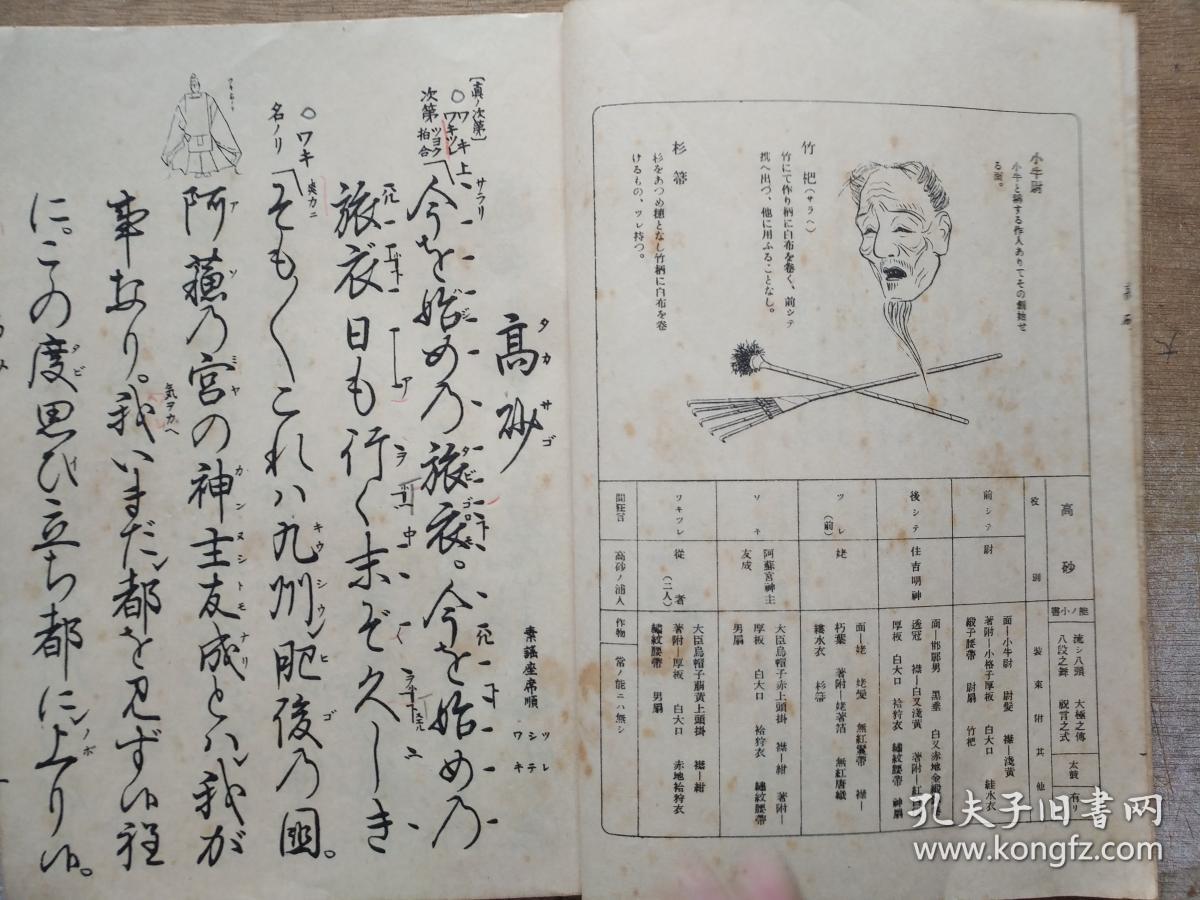 小牛尉
小牛と稱する作人ありてその創始せ
る面。
竹杷(サラヘ)
竹にて作り柄に白布を卷く、前シテ
携へ出づ、他に用ふることなし。
杉箒
杉をあつめ穗となし竹柄に白布を卷
けるもの、ツレ持つ。
高砂
能ノ小書
流シ八頭 大極之傳
八段之舞 祝言之式
太鼓 有リ
役別
裝束附其他
前シテ
尉
面―小牛尉 尉髮 襟―淺黃
著附―小格子厚板 白大口 絓水衣
緞子腰帶 尉扇 竹杷
後シテ
住吉明神
面―邯鄲男 黑垂
透冠 襟―白又淺黃 著附―紅
厚板 白大口 袷狩衣 繡紋腰帶 神扇
ツレ(前)
姥
面―姥 姥髮 無紅鬘帶 襟―
朽葉 著附―姥著箔 無紅唐織
縷水衣 杉箒
ワキ
阿蘇宮神主
友成
大臣烏帽子赤上頭掛 襟―紺 著附―
厚板 白大口 袷狩衣 繡紋腰帶
男扇
ワキツレ
從者(二人)
大臣烏帽子萠黃上頭掛 襟―紺
著附―厚板 白大口 赤地袷狩衣
繡紋腰帶 男扇
間狂言
高砂ノ浦人
作物
常ノ能ニハ無シ
高砂
タカサゴ
素謠座席順
ツレ
シテ
ワキ
[眞ノ次第]
○ワキ
ワキツレ
次第
ツヨク
拍合
上
サラリ
今を始めの旅衣。今を始めの
旅衣日も行く末ぞ久しき
○ワキ
名ノリ
そもそもこれハ九州肥後の國。
阿蘇の宮の神主友成とハ我が
事なり。我いまだ都を見ず候程
気ヲカヘ
に。この度思ひ立ち都に上り候。
孔夫子旧书网
www.kongfz.com